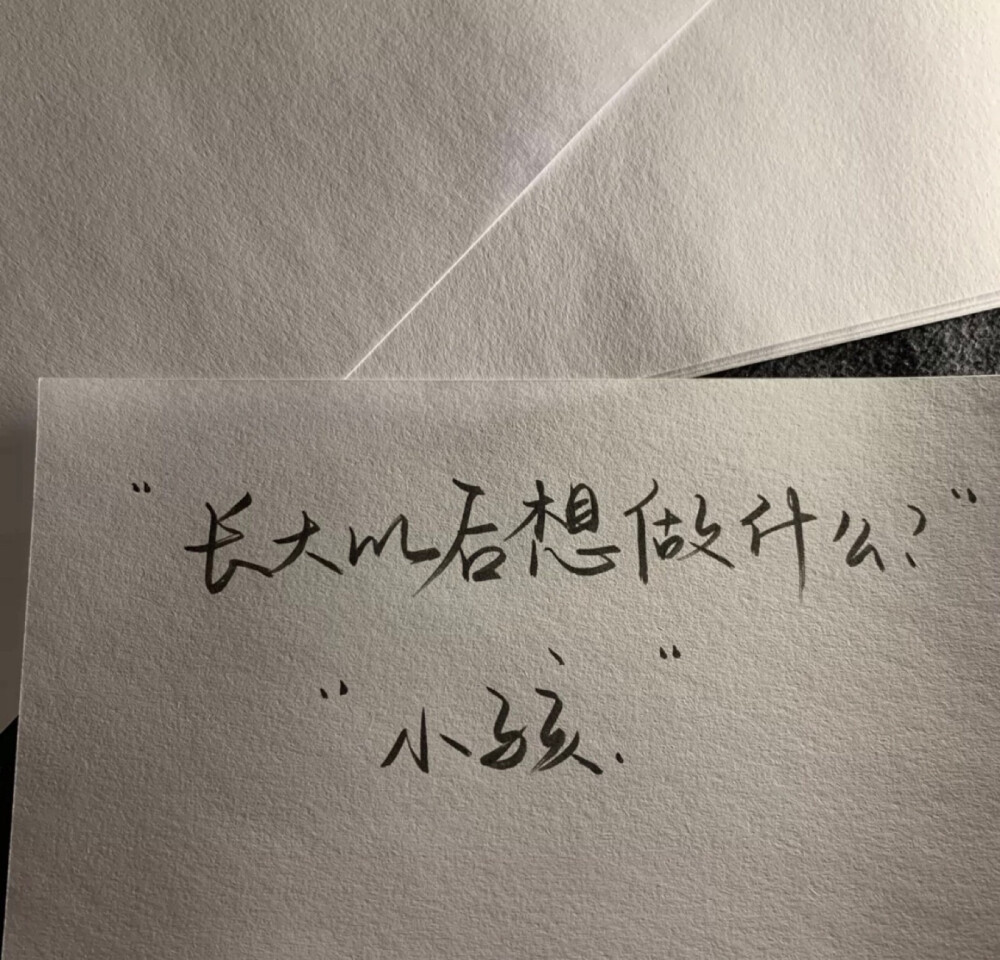 “长大以后想做什么?”
“小孩.”